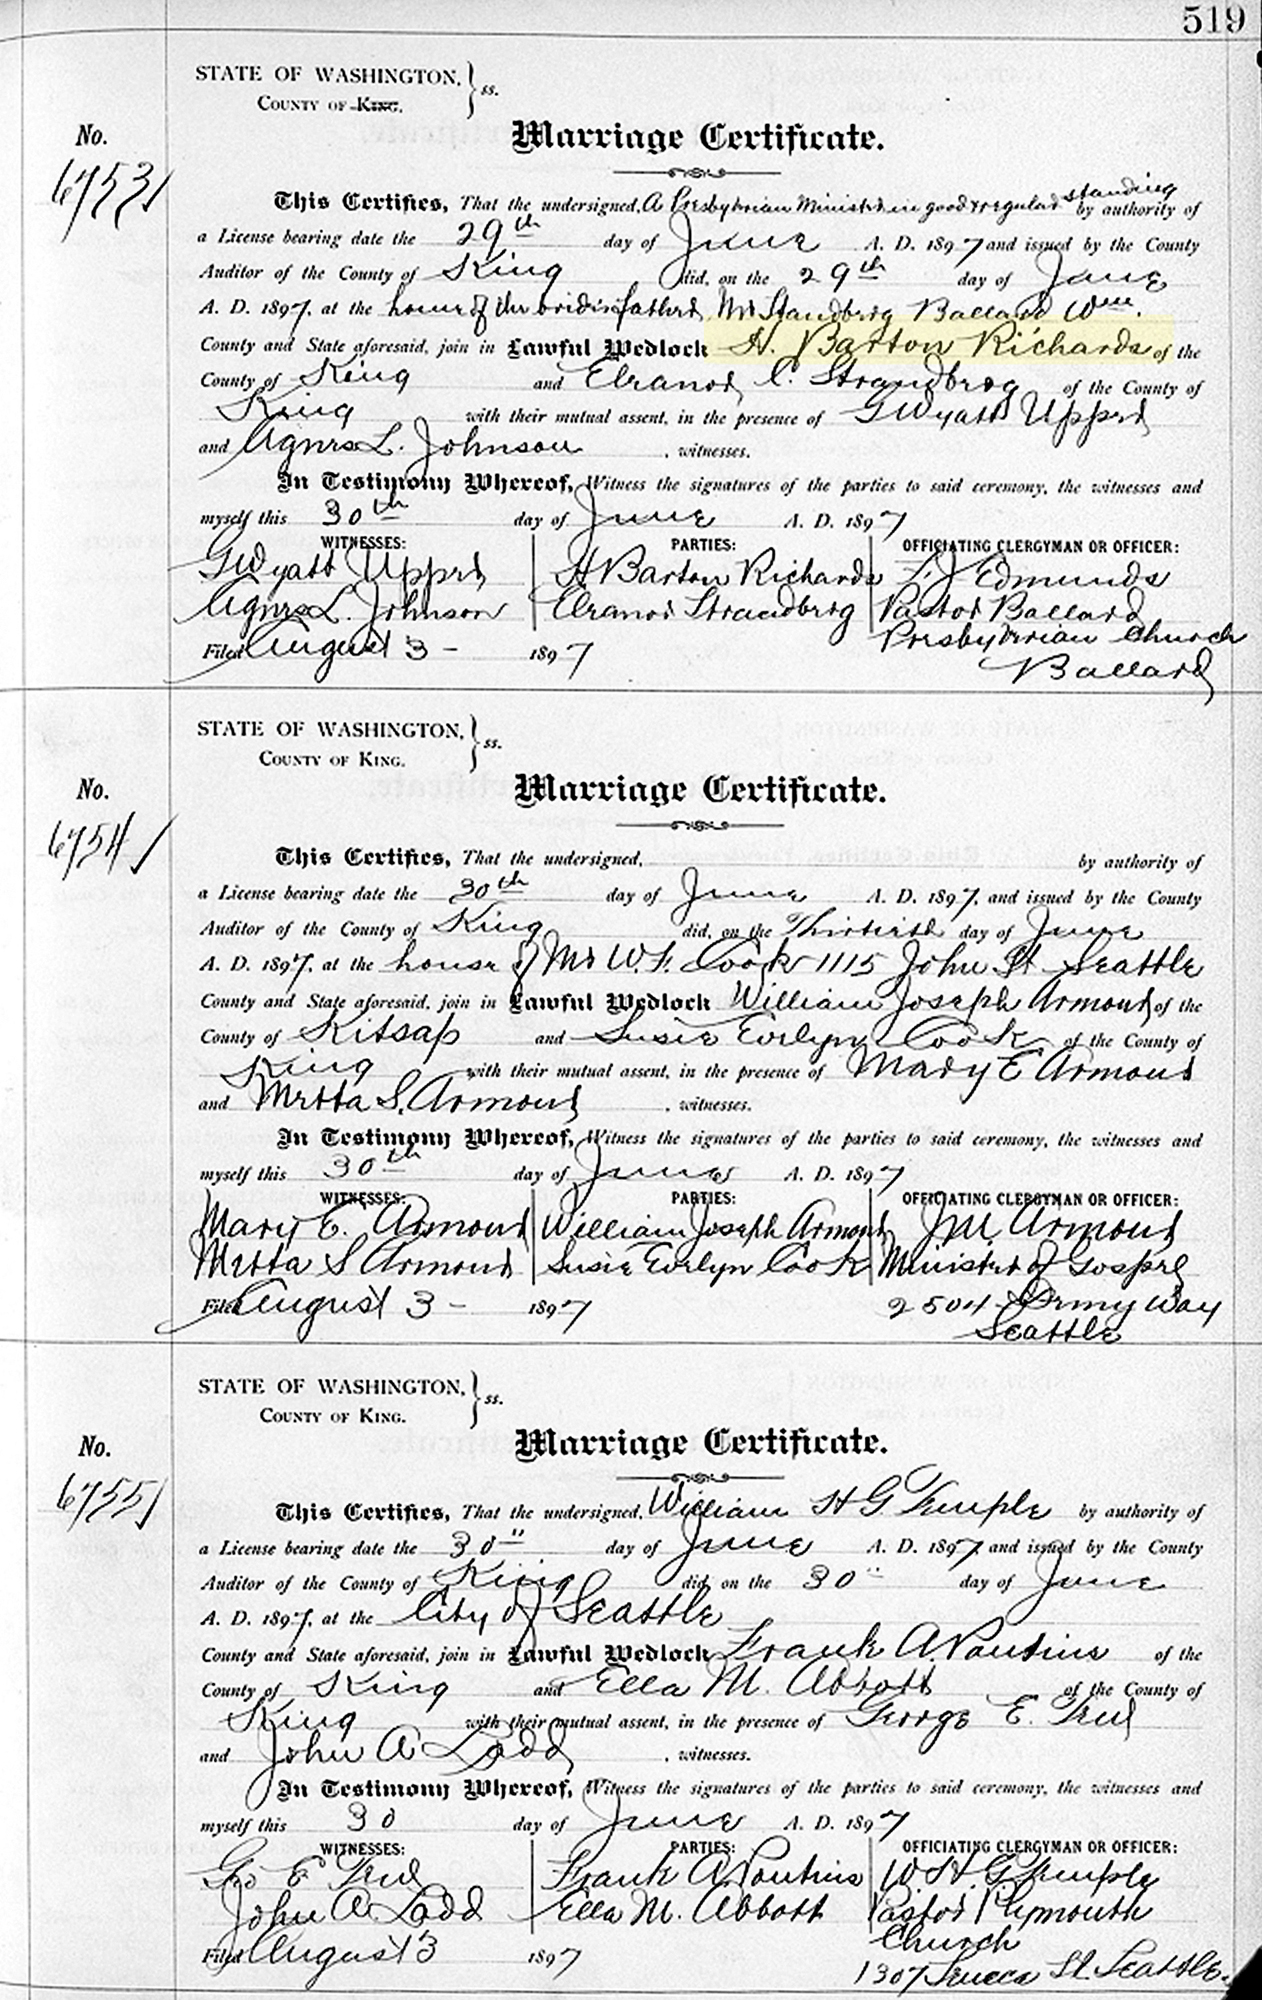 519
STATE OF WASHINGTON, } ss.
COUNTY OF KING.
No.
6753
Marriage Certificate.
This Certifies, That the undersigned, A Presbyterian Minister in good & regular standing by authority of
a License bearing date the 29th day of June A. D. 1897 and issued by the County
Auditor of the County of King did, on the 29th day of June
A. D. 1897, at the house of the bride's father, Mr Standberg Ballard Wn.
County and State aforesaid, join in Lawful Wedlock H. Barton Richards of the
County of King and Eleanor C. Strandberg of the County of
King with their mutual assent, in the presence of G Wyatt Upper
and Agnes L. Johnson, witnesses.
In Testimony Whereof, Witness the signatures of the parties to said ceremony, the witnesses and
myself this 30th day of June A. D. 1897
WITNESSES: PARTIES: OFFICIATING CLERGYMAN OR OFFICER:
G Wyatt Upper H Barton Richards L J Edmunds
Agnes L. Johnson Eleanor Strandberg Pastor Ballard
Presbyterian Church
Filed August 3 - 1897
Ballard
STATE OF WASHINGTON, } ss.
COUNTY OF KING.
No.
6754
Marriage Certificate.
This Certifies, That the undersigned, by authority of
a License bearing date the 30th day of June A. D. 1897, and issued by the County
Auditor of the County of King did, on the Thirtieth day of June
A. D. 1897, at the house of Mr W. F. Cook 1115 John St Seattle
County and State aforesaid, join in Lawful Wedlock William Joseph Armour of the
County of Kitsap and Susie Evelyn Cook of the County of
King with their mutual assent, in the presence of Mary E Armour
and Metta S. Armour, witnesses.
In Testimony Whereof, Witness the signatures of the parties to said ceremony, the witnesses and
myself this 30th day of June A. D. 1897
WITNESSES: PARTIES: OFFICIATING CLERGYMAN OR OFFICER:
Mary E. Armour William Joseph Armour J. M. Armour
Metta S Armour Susie Evelyn Cook Minister of Gospel
Filed August 3 - 1897 2504 Way
Seattle
STATE OF WASHINGTON, } ss.
COUNTY OF KING.
No.
6755
Marriage Certificate.
This Certifies, That the undersigned, William H G Temple by authority of
a License bearing date the 30" day of June A. D. 1897, and issued by the County
Auditor of the County of King did, on the 30" day of June
A. D. 1897, at the City of Seattle
County and State aforesaid, join in Lawful Wedlock Frank A. Pontius of the
County of King and Ella M. Abbott of the County of
King with their mutual assent, in the presence of George E.
and John A Ladd, witnesses.
In Testimony Whereof, Witness the signatures of the parties to said ceremony, the witnesses and
myself this 30 day of June A. D. 1897
WITNESSES: PARTIES: OFFICIATING CLERGYMAN OR OFFICER:
Geo E Frank A. Pontius W. H. G Temple
John A. Ladd Ella M. Abbott Pastor Plymouth
Church
Filed August 3 1897
1307 Seneca St. Seattle.